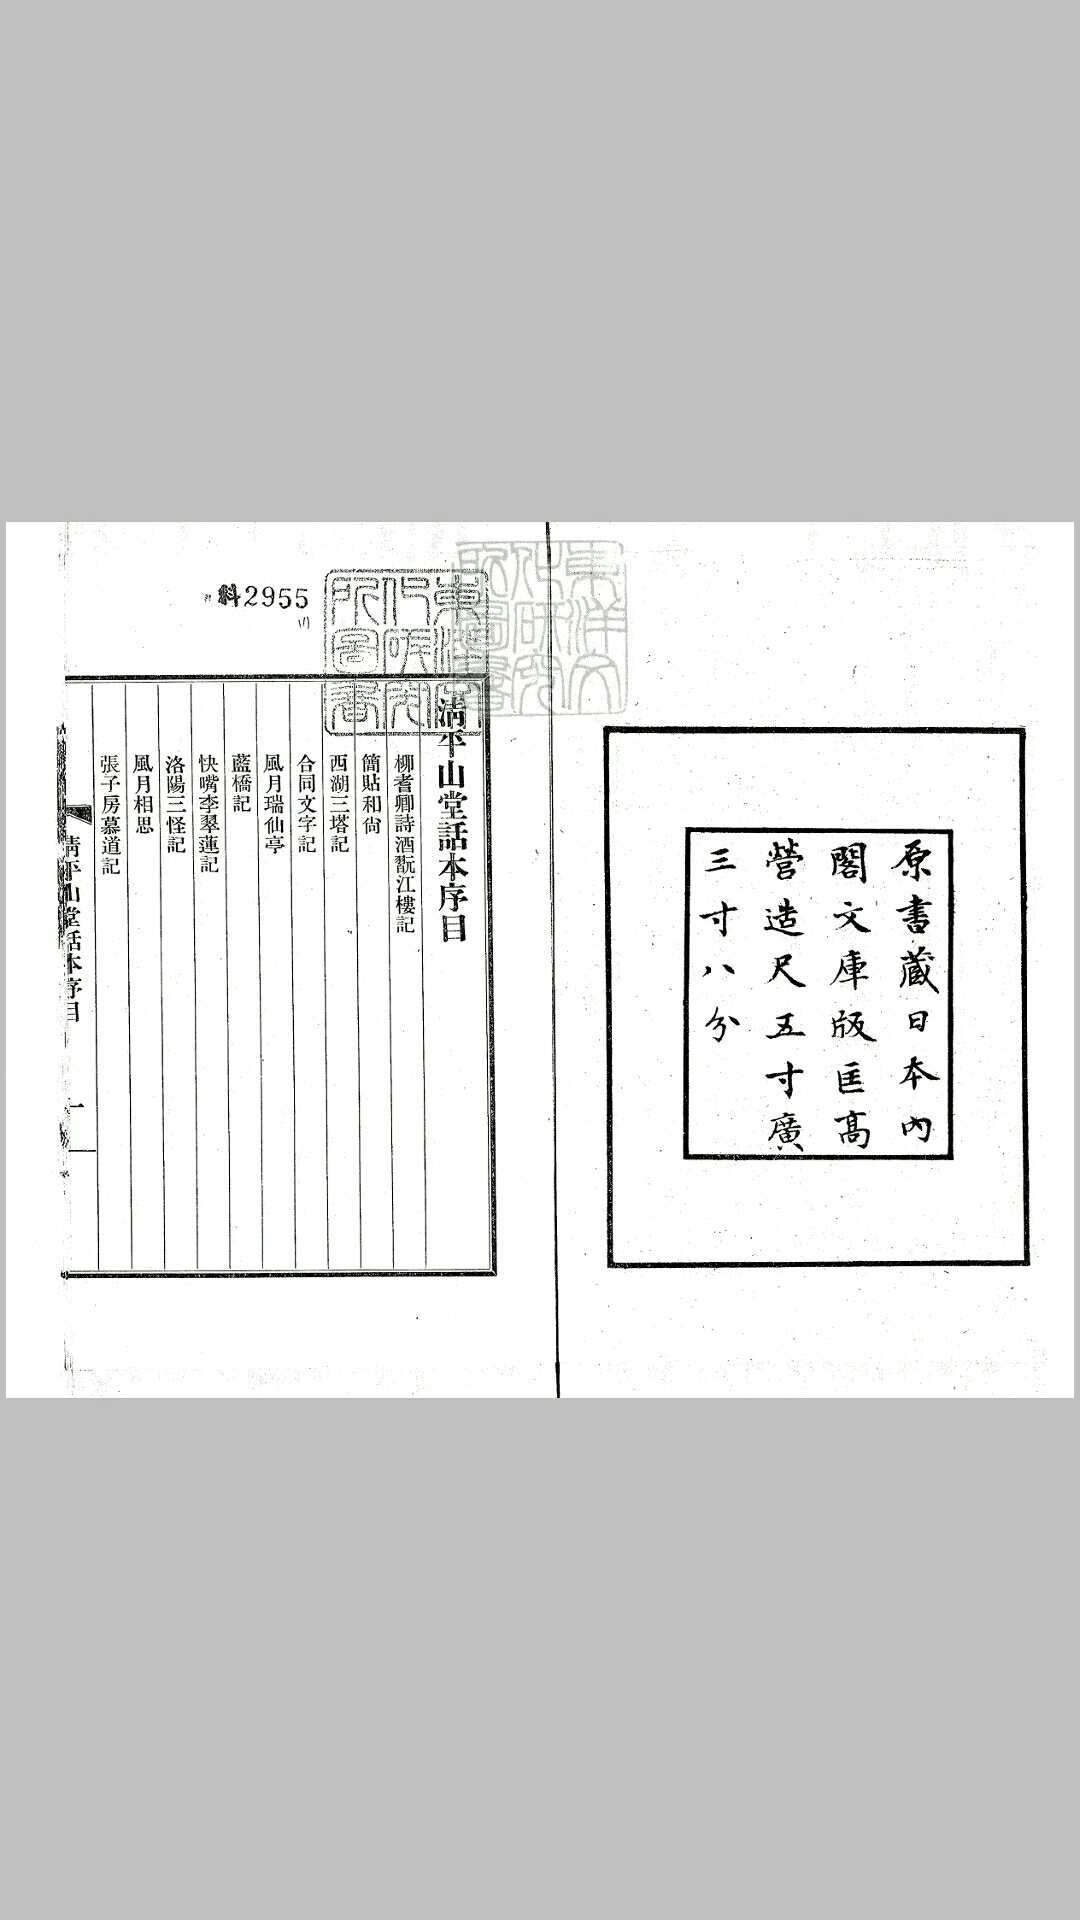 原書藏日本內
閣文庫版匡高
營造尺五寸廣
三寸八分
東洋文
化研究
所圖書
料2955
清平山堂話本序目
柳耆卿詩酒翫江樓記
簡貼和尙
西湖三塔記
合同文字記
風月瑞仙亭
藍橋記
快嘴李翠蓮記
洛陽三怪記
風月相思
張子房慕道記
清平山堂話本序目
一